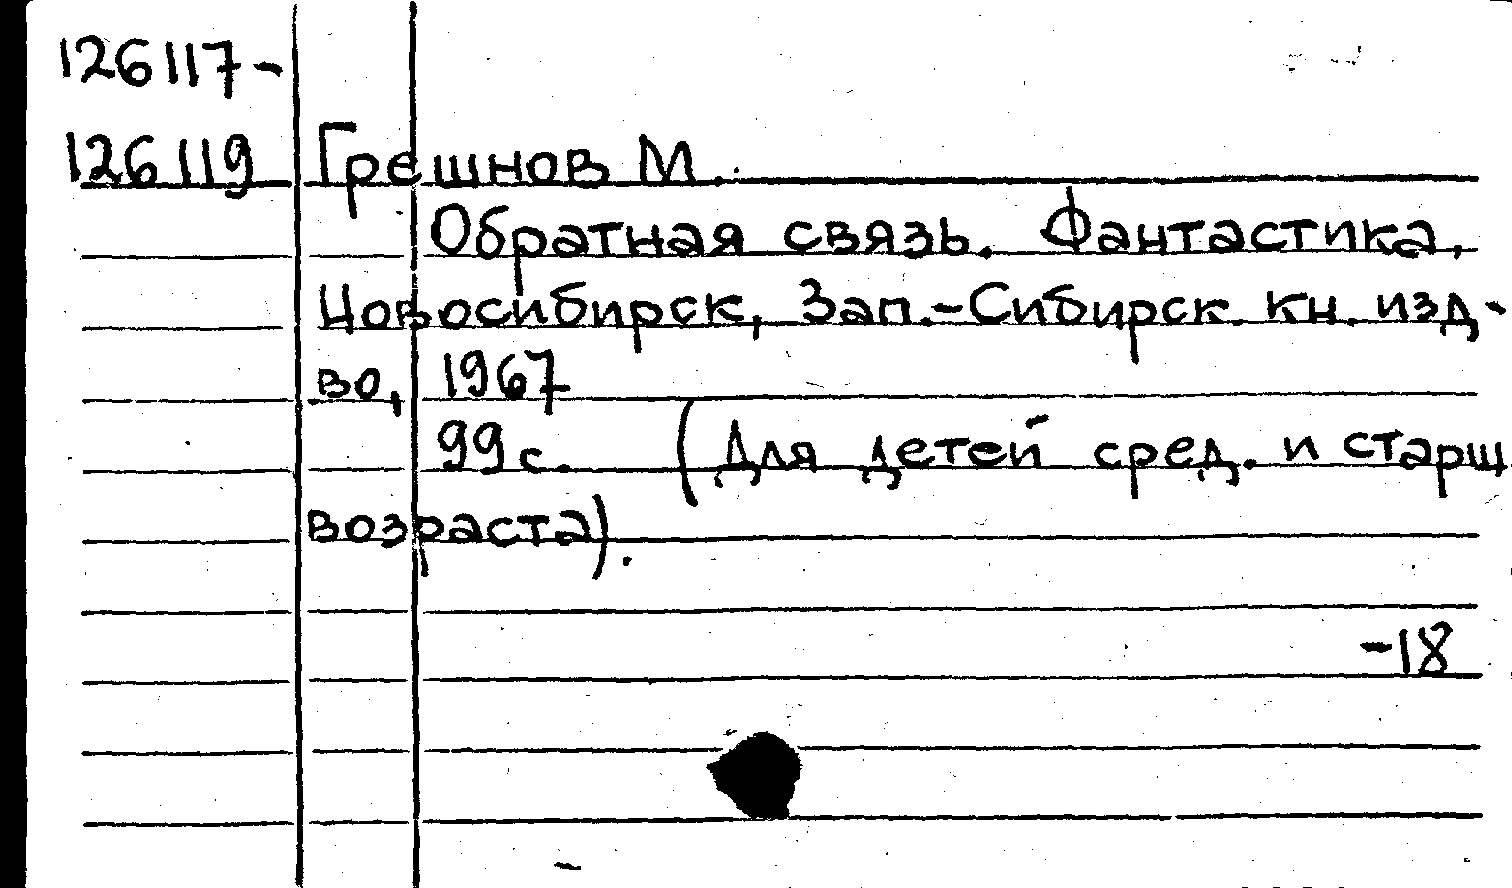 126117-
126119 Грешнов М.
Обратная связь. Фантастика,
Новосибирск, Зап.-Сибирск. кн. изд-
во, 1967
99 с. (Для детей сред. и старш
возраста).
-18